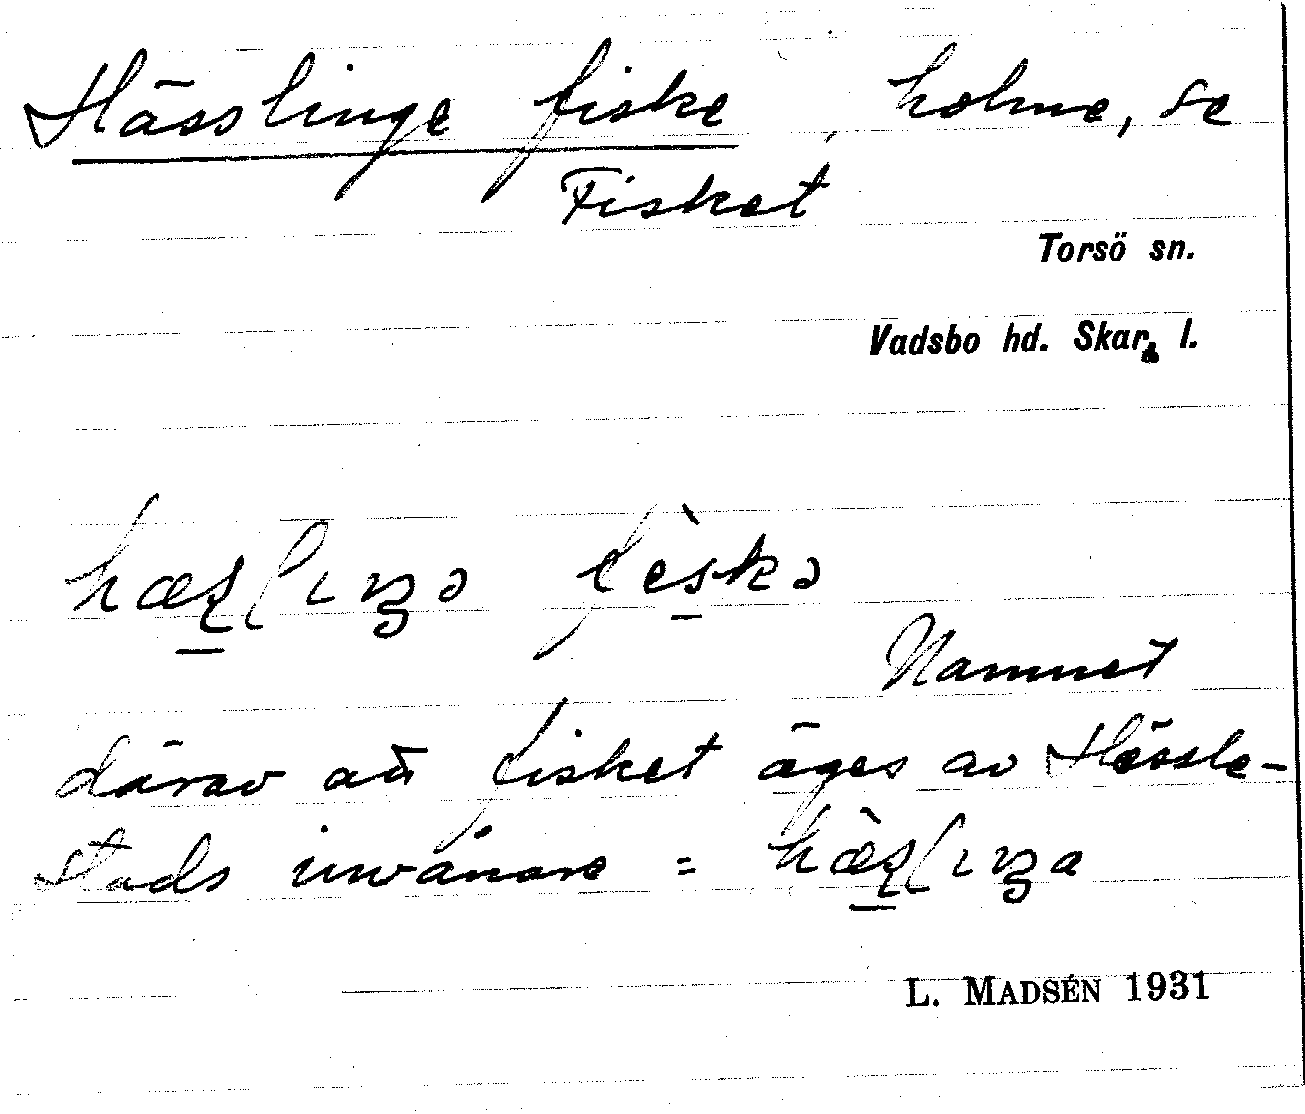 Hässlinge fiske, holme, se
Fisket
Torsö sn.
Vadsbo hd. Skara l.
fèskə
Namnet
därav att fisket äges av Hässle-
stads invånare =
L. MADSÉN 1931